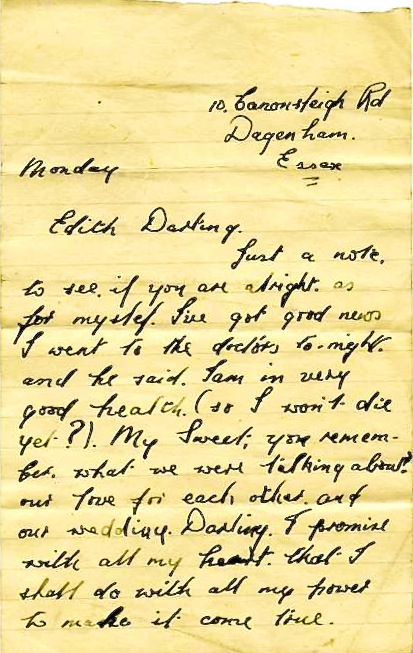 10. Canonsleigh Rd
Dagenham.
Essex
Monday
Edith Darling.
Just a note.
to see. if you are alright. as
for myslef. I've got good news
I went to the doctors to-night.
and he said. I am in very
good health. (so I won't die
yet?). My Sweet, you remem-
ber. what we were talking about?
our love for each other. and
our wedding. Darling. I promise
with all my heart. that I
shall do with all my power
to make it come true.